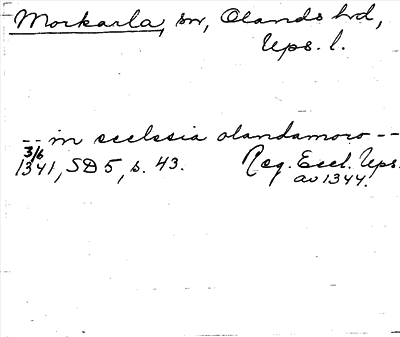 Morkarla, sn, Olands hd,
Ups. l.
-- in ecclesia olandamoro --
3/6
1341, SD 5, s. 43. Reg. Eccl. Ups.
av 1344.